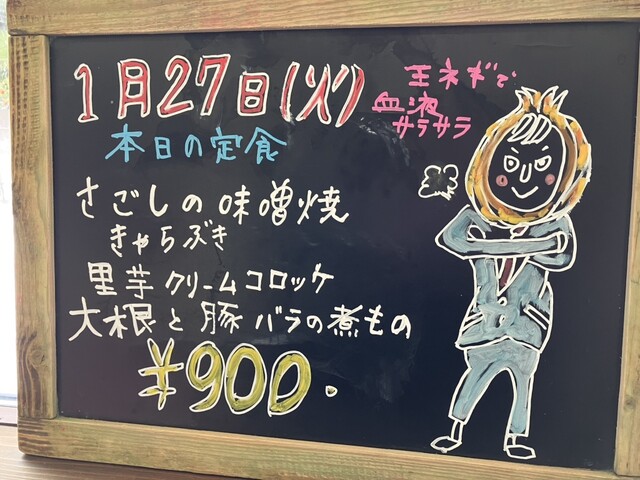 1月27日(火)
玉ネギで
血液
サラサラ
本日の定食
さごしの味噌焼
きゃらぶき
里芋クリームコロッケ
大根と豚バラの煮もの
¥900.